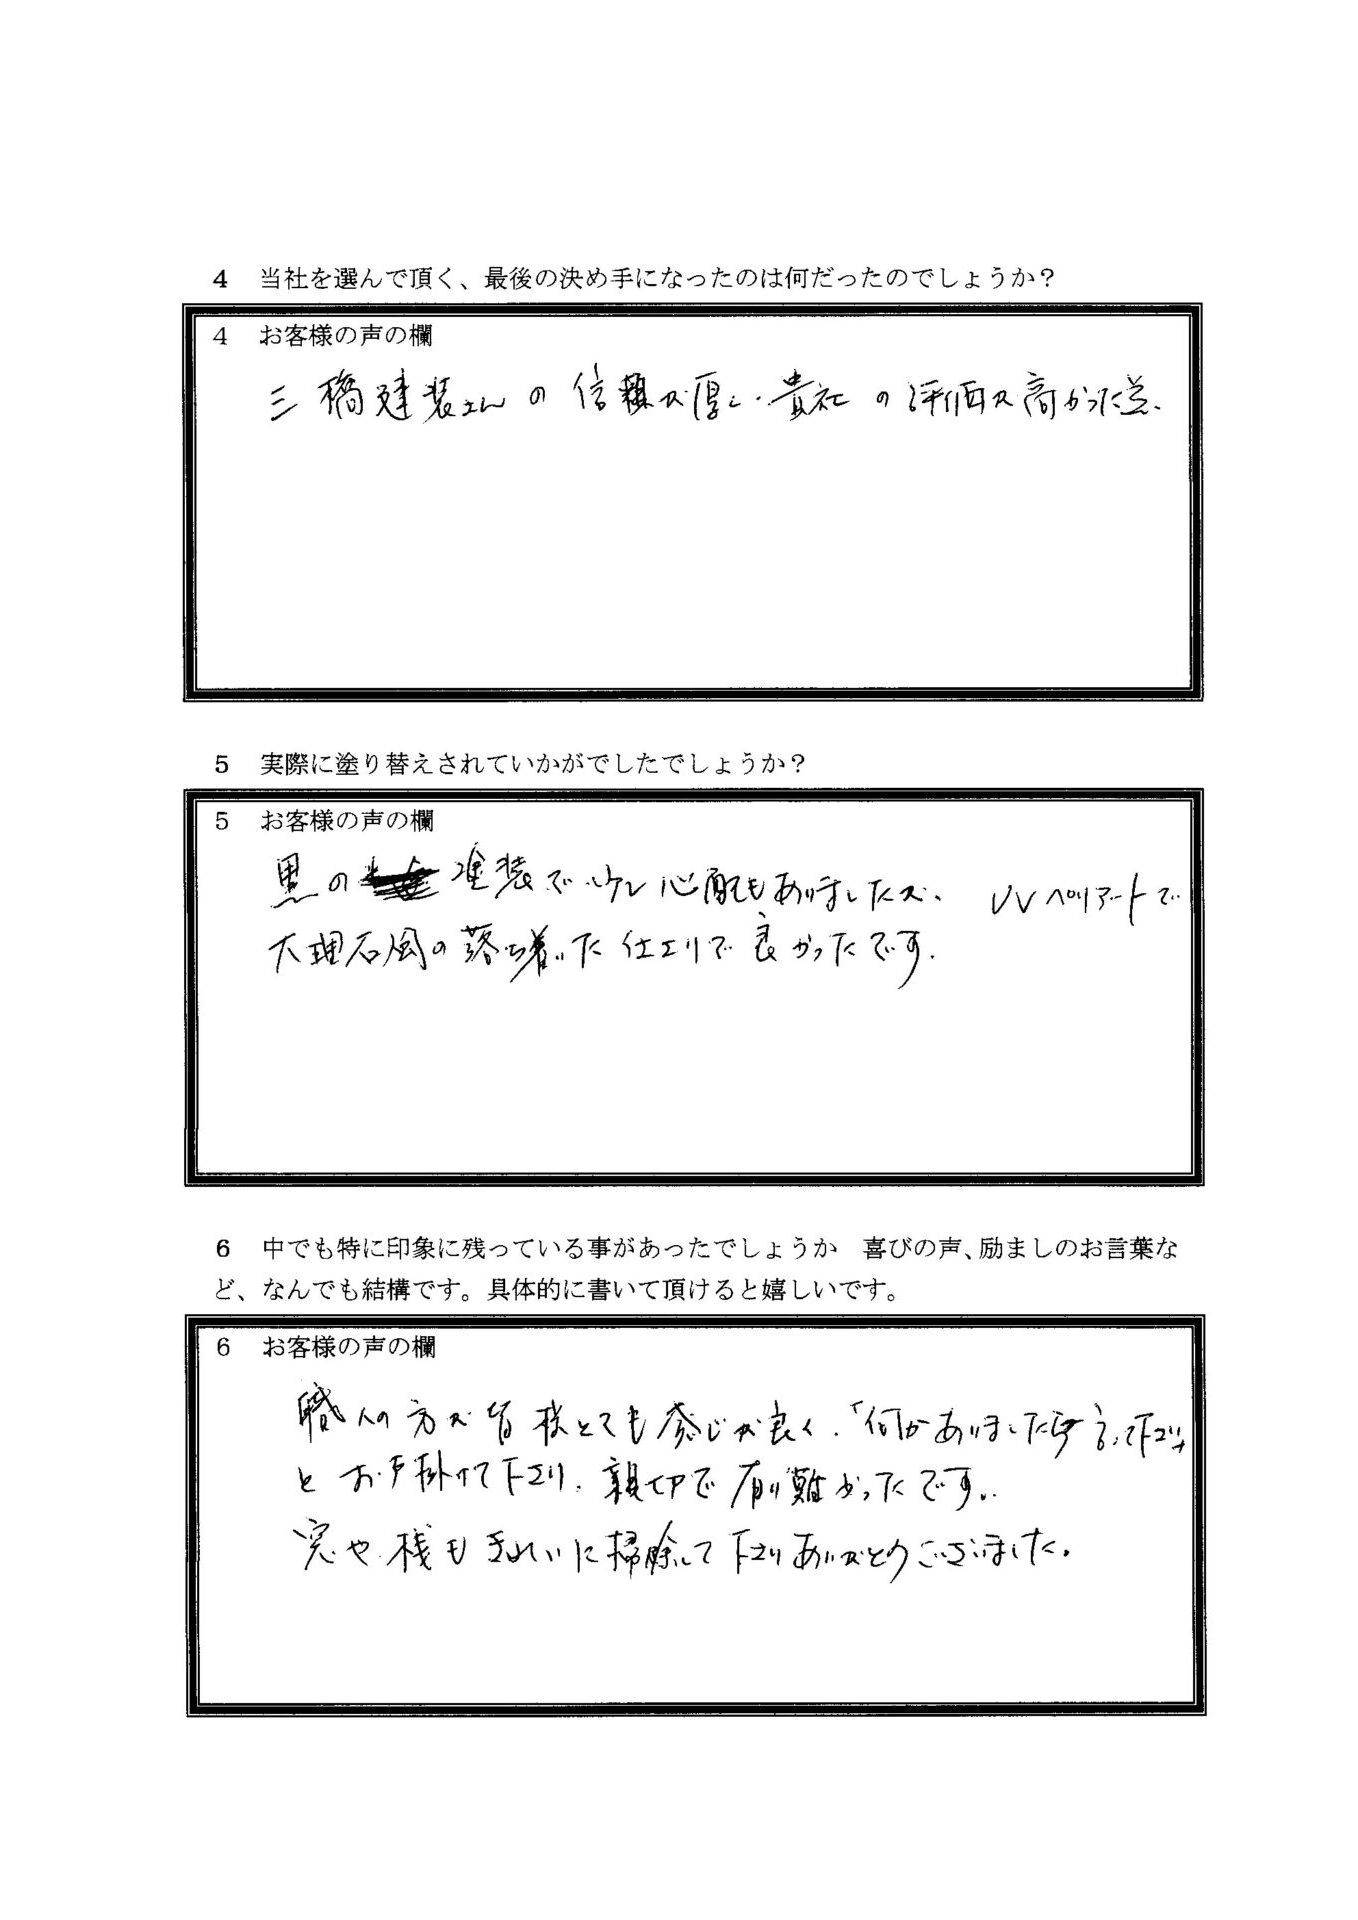 4 当社を選んで頂く、最後の決め手になったのは何だったのでしょうか？
4 お客様の声の欄
三橋建装さんの信頼が厚く、貴社の評価が高かった点、
5 実際に塗り替えされていかがでしたでしょうか？
5 お客様の声の欄
黒の 塗装で少し心配もありましたが、UVペリアートで
大理石風の落ち着いた仕上りで良かったです。
6 中でも特に印象に残っている事があったでしょうか 喜びの声、励ましのお言葉な
ど、なんでも結構です。具体的に書いて頂けると嬉しいです。
6 お客様の声の欄
職人の方が皆様とても感じが良く、「何かありましたら言って下さい」
とお声掛けて下さり、親切で有り難かったです。
窓や桟もきれいに掃除して下さりありがとうございました。